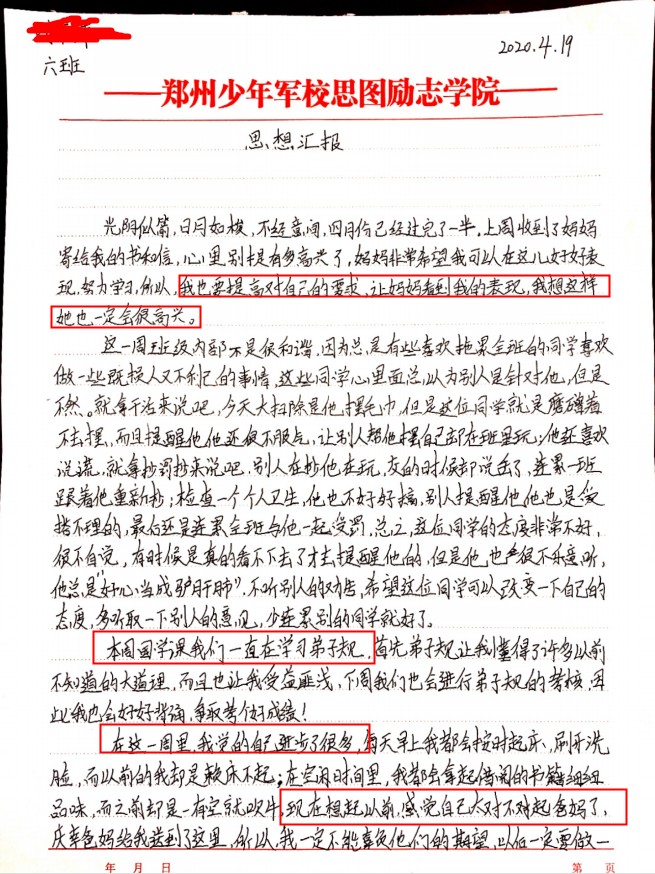 2020.4.19
六班
郑州少年军校思图励志学院
思想汇报
光阴似箭,日月如梭,不经意间,四月份已经过完了一半,上周收到了妈妈
寄给我的书和信,心里别提有多高兴了,妈妈非常希望我可以在这儿好好表
现,努力学习,所以,我也要提高对自己的要求,让妈妈看到我的表现,我想这样
她也一定会很高兴。
这一周班级内部不是很和谐,因为总是有些喜欢拖累全班的同学喜欢
做一些既损人又不利己的事情,这些同学心里面总以为别人是针对他,但是
不然。就拿干活来说吧,今天大扫除是他摆毛巾,但是这位同学就是磨磨着
不去摆,而且提醒他他还很不服气,让别人帮他摆自己却在班里玩;他还喜欢
说谎,就拿抄罚抄来说吧,别人在抄他在玩,交的时候却说丢了,连累一班
跟着他重新抄;检查一个个人卫生,他也不好好搞,别人提醒他他也是爱
搭不理的,最后还是连累全班与他一起受罚,总之,这位同学的态度非常不好,
很不自觉,有时候是真的看不下去了才去提醒他的,但是他也很不乐意听,
他总是"好心当成驴肝肺",不听别人的劝告,希望这位同学可以改变一下自己的
态度,多听取一下别人的意见,少连累别的同学就好了。
本周国学课我们一直在学习弟子规,首先弟子规让我懂得了许多以前
不知道的大道理,而且也让我受益匪浅,下周我们也会进行弟子规的考核,因
此我也会好好背诵,争取考个好成绩!
在这一周里,我觉的自己进步了很多,每天早上我都会按时起床,刷牙洗
脸,而以前的我却是赖床不起;在空闲时间里,我都会拿起借阅的书籍细细
品味,而之前却是一有空就吹牛,现在想起以前,感觉自己太对不对起爸妈了,
庆幸爸妈给我送到了这里,所以,我一定不能辜负他们的期望,以后一定要做一
年 月 日
第 页